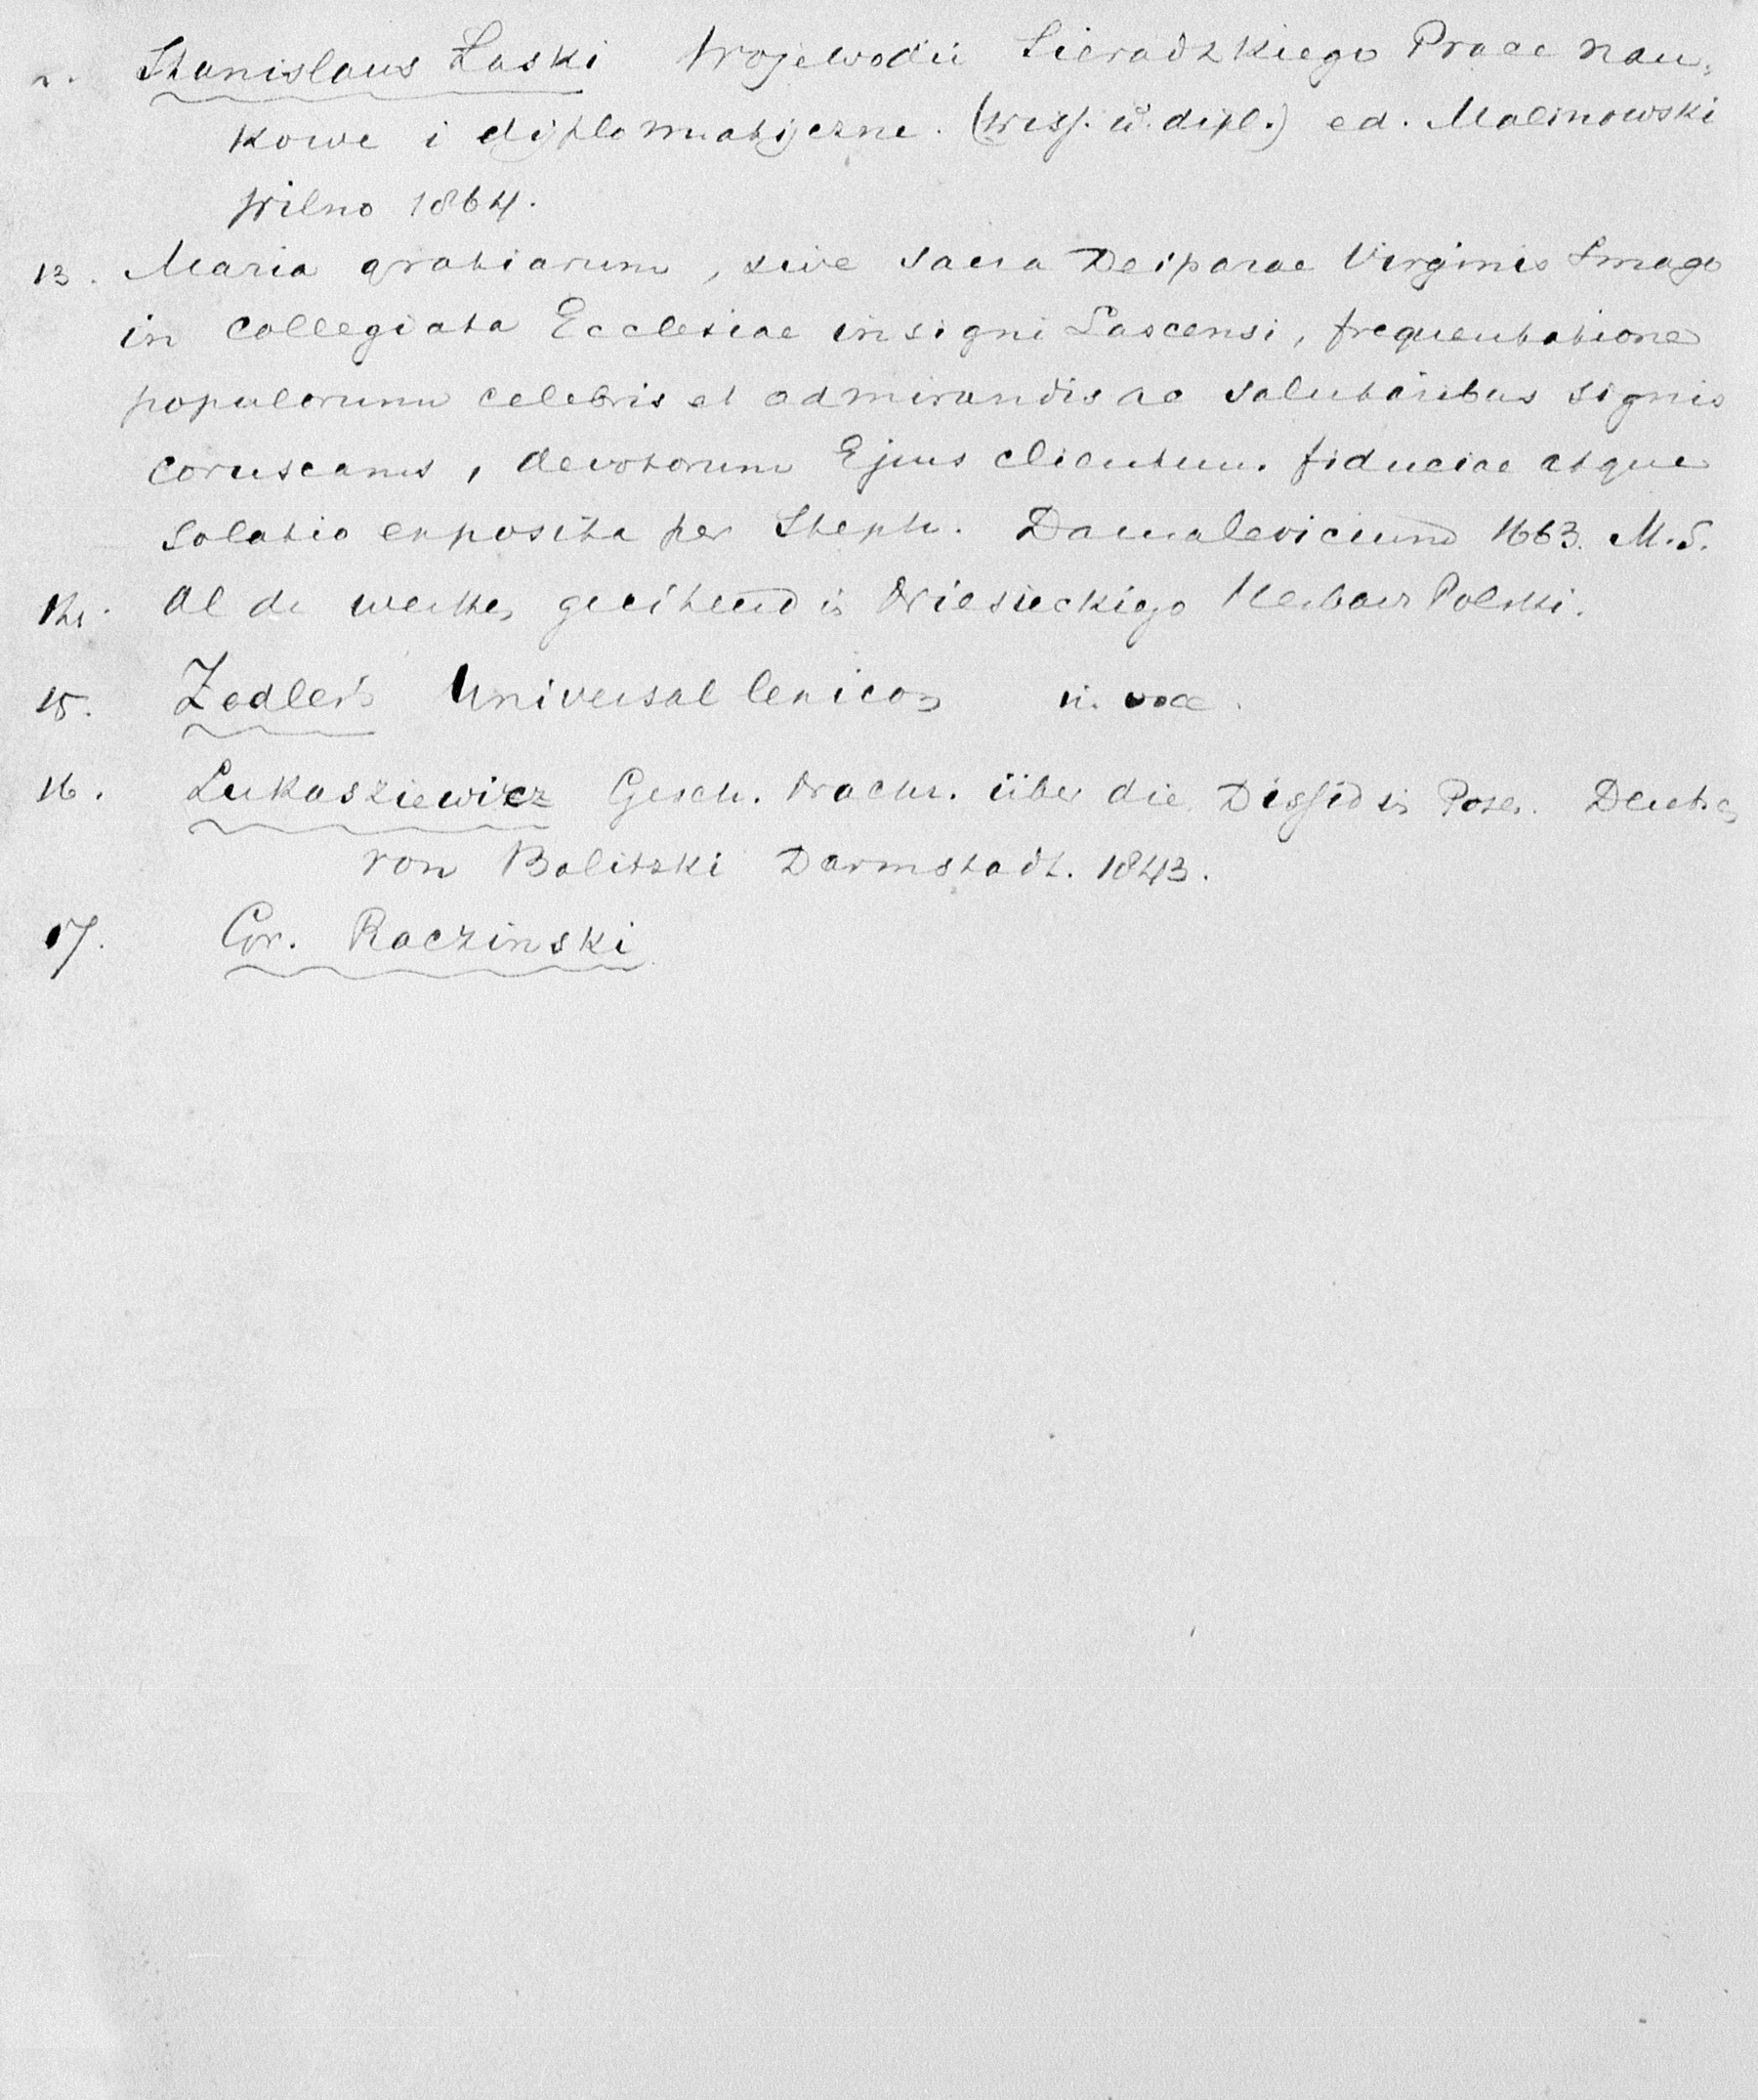 Stanislaus Łaski Wojewodii Sieradzkiego Prace nau-
kowe i diplomatijczne. (wiss. u. dipl.) ed. Malinowski
Wilno 1864.
13. Maria gratiarum, sive sacra Deiparae Virginis Imago
in Collegiata Ecclesiae insigni Lascensi, frequentatione
populorum celebris et admirandis ac salutaribus signis
coruscans, devotorum Ejus clientum fiduciae atque
solatio exposita per Steph. Damalevicium 1663. M.S.
14. Al de werken geciteerd in Niesieckiego Herbarz Polski.
15. Zedler's Universal lexicon in voce.
16. Lukasziewicz Gesch. Nachr. über die Dissid in Posen. Deutsch
von Balitzki Darmstadt. 1843.
17. Gr. Raczinski